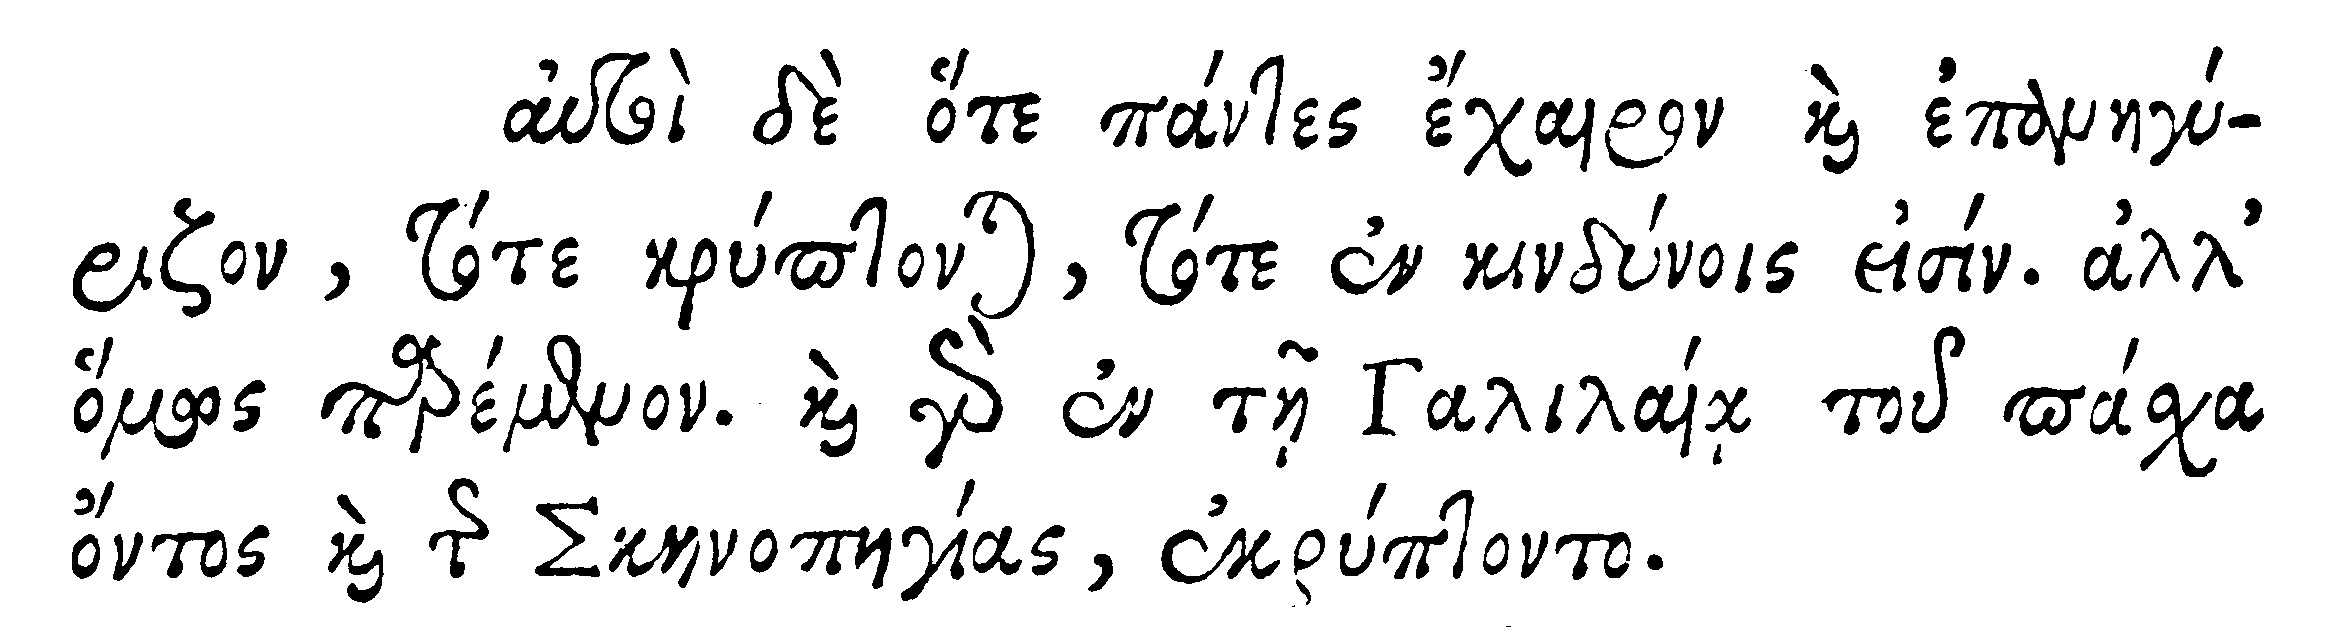 αὐτοὶ δὲ ὅτε πάντες ἔχαιρον καὶ ἐπανηγύ-
ριζον, τότε κρύπτονται, τότε ἐν κινδύνοις εἰσίν. ἀλλ’
ὅμως παρέμενον. καὶ γὰρ ἐν τῇ Γαλιλαίᾳ τοῦ πάσχα
ὄντος καὶ τῆς Σκηνοπηγίας, ἐκρύπτοντο.